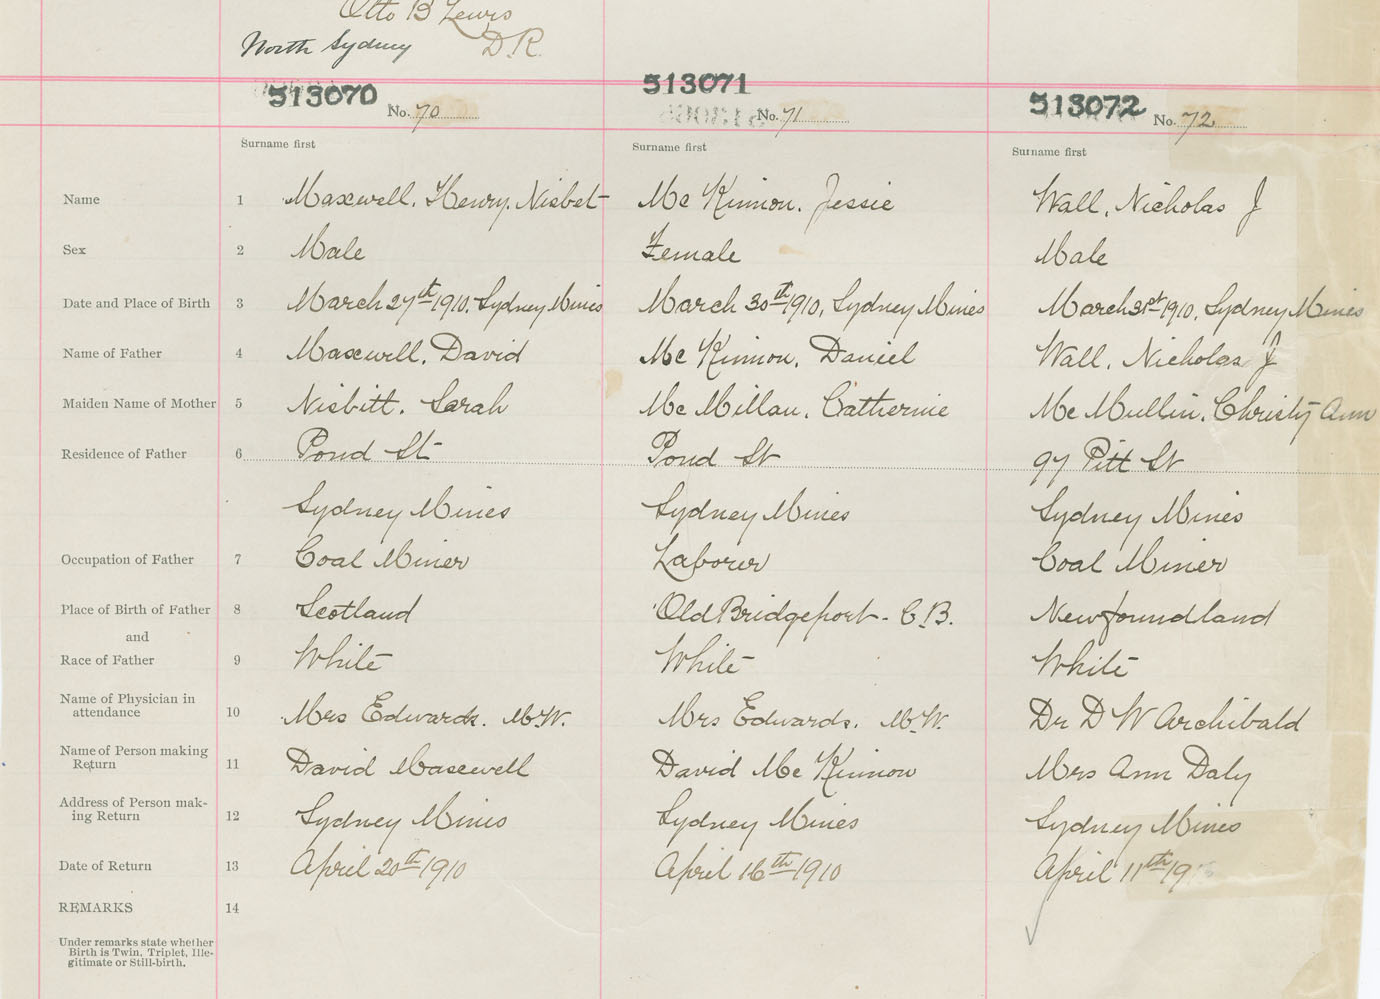 Otto B Lewis
North Sydney D.R.
513070 No. 70
513071 No. 71
513072 No. 72
Surname first Surname first Surname first
Name 1 Maxwell, Henry, Nisbet Mc Kinnon, Jessie Wall, Nicholas J
Sex 2 Male Female Male
Date and Place of Birth 3 March 27th 1910, Sydney Mines March 30th 1910, Sydney Mines March 31st 1910, Sydney Mines
Name of Father 4 Maxwell, David Mc Kinnon, Daniel Wall, Nicholas J
Maiden Name of Mother 5 Nisbitt, Sarah Mc Millan, Catherine Mc Mullin, Christy Ann
Residence of Father 6 Pond St Pond St 97 Pitt St
Sydney Mines Sydney Mines Sydney Mines
Occupation of Father 7 Coal Miner Laborer Coal Miner
Place of Birth of Father 8 Scotland Old Bridgeport - C.B. Newfoundland
and
Race of Father 9 White White White
Name of Physician in
attendance 10 Mrs Edwards. M.W. Mrs Edwards. M.W. Dr D W Archibald
Name of Person making
Return 11 David Maxwell David Mc Kinnon Mrs Ann Daly
Address of Person mak-
ing Return 12 Sydney Mines Sydney Mines Sydney Mines
Date of Return 13 April 20th 1910 April 16th 1910 April 11th 19
REMARKS 14
Under remarks state whether
Birth is Twin, Triplet, Ille-
gitimate or Still-birth.